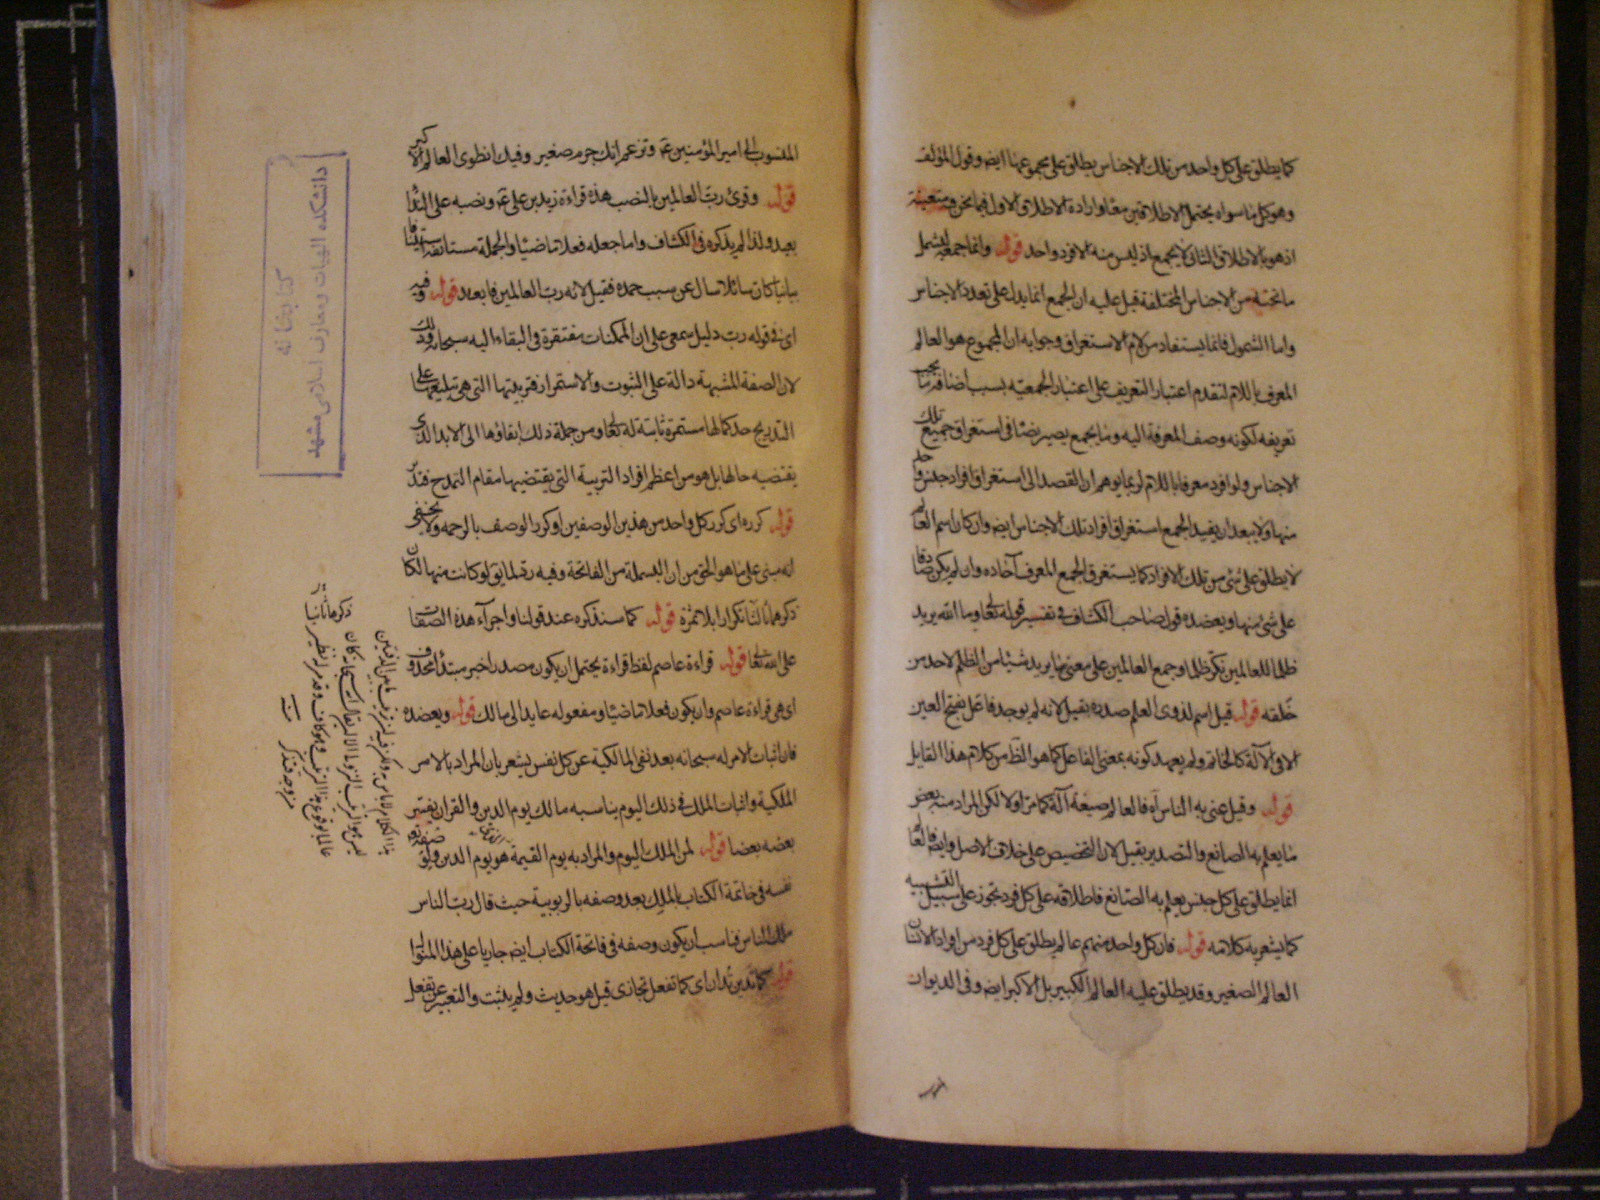 كما يطلق على كل واحد من تلك الاجناس يطلق على مجموعها ايضا وقول المؤلف
وهو كل ما سواه يحتمل الاطلاقين معا وارادة الاطلاق الاول فيما نحن فيه متعينة
اذ هو بالاطلاق الثانى لا يجمع اذ ليس منه الا فرد واحد قوله وانما جمعه ليشمل
ما تحته من الاجناس المختلفة قيل عليه ان الجمع انما يدل على تعدد الاجناس
واما الشمول فانما يستفاد من لام الاستغراق وجوابه ان المجموع هو العالم
المعرف باللام لتقدم اعتبار التعريف على اعتبار الجمعية بسبب اضافة ما يجب
تعريفه لكونه وصف المعرفة اليه وبالجمع يصير نصا فى استغراق جميع تلك
الاجناس ولو افرد معرفا باللام لربما يوهم ان القصد الى استغراق افراد جنس واحد
منها ولا يبعد ان يفيد الجمع استغراق افراد تلك الاجناس ايضا وان كان اسم العالم
لا يطلق على شئ من تلك الافراد كما يستغرق الجمع المعرف آحاده وان لم يكن صادقا
على شئ منها ويعضده قول صاحب الكشاف فى تفسير قوله تعالى وما الله يريد
ظلما للعالمين نكر ظلما وجمع العالمين على معنى ما يريد شيئا من الظلم لاحد من
خلقه قوله قيل اسم لذوى العلم صدره بقيل لانه لم يوجد فاعل بفتح العين
الا فى الآلة كالخاتم ولم يعهد كونه بمعنى الفاعل كما هو الظ من كلام هذا القايل
قوله وقيل عنى به الناس آه فالعالم صيغة آلة كما مر اولا لكن المراد منه بعض
ما يعلم به الصانع والتصدير بقيل لان التخصيص على خلاف الاصل وايضا فالعالم
انما يطلق على كل جنس يعلم به الصانع فاطلاقه على كل فرد تجوز على سبيل التشبيه
كما يشعر به كلامه قوله فان كل واحد منهم عالم يطلق على كل فرد من افراد الانسان
العالم الصغير وقد يطلق عليه العالم الكبير بل الاكبر ايضا وفى الديوان
المنسوب الى امير المؤمنين ع وتزعم انك جرم صغير وفيك انطوى العالم الاكبر
قوله وقرئ رب العالمين بالنصب هذه قراءة زيد بن على ع ونصبه على النداء
بعيد ولذا لم يذكره فى الكشاف واما جعله فعلا ماضيا والجملة مستانفة استينافا
بيانيا كان سائلا سال عن سبب حمده فقيل لانه رب العالمين فابعد قوله وفيه
اى فى قوله رب دليل سمعى على ان الممكنات مفتقرة فى البقاء اليه سبحانه وذلك
لان الصفة المشبهة دالة على الثبوت والاستمرار فتربيتها التى هى تبليغها على
التدريج حد كمالها مستمرة ثابتة له تعالى ومن جملة ذلك ابقاؤها الى الابد الذى
يقتضيه حالها بل هو من اعظم افراد التربية التى يقتضيها مقام التمدح فتدبر
قوله كرره اى كرر كل واحد من هذين الوصفين او كرر الوصف بالرحمة ولا يخفى
انه مبنى على ما هو الحق من ان البسملة من الفاتحة وفيه رد لما يق لو كانت منها لكان
ذكرهما ثانيا تكرارا بلا ثمرة قوله كما سنذكره عند قولنا واجراء هذه الصفات
على الله تعالى قوله قراءة عاصم لفظ قراءة يحتمل ان يكون مصدرا خبر مبتدأ محذوف
اى هى قراءة عاصم وان يكون فعلا ماضيا ومفعوله عايدا الى مالك قوله ويعضده
فان اثبات الامر له سبحانه بعد نفى المالكية عن كل نفس يشعر بان المراد بالامر
الملكية واثبات الملك فى ذلك اليوم يناسبه مالك يوم الدين والقران يفسر
بعضه بعضا قوله لمن الملك اليوم والمراد به يوم القيمة هو يوم الدين
نفسه فى خاتمة الكتاب بالملك بعد وصفه بالربوبية حيث قال رب الناس
ملك الناس فناسب ان يكون وصفه فى فاتحة الكتاب ايضا جاريا على هذا المنوال
قوله كما تدين تدان اى كما تفعل تجازى قيل هو حديث ولم يثبت والتعبير عن تفعل
دانشكده الهيات ومعارف اسلامى مشهد
كتابخانه